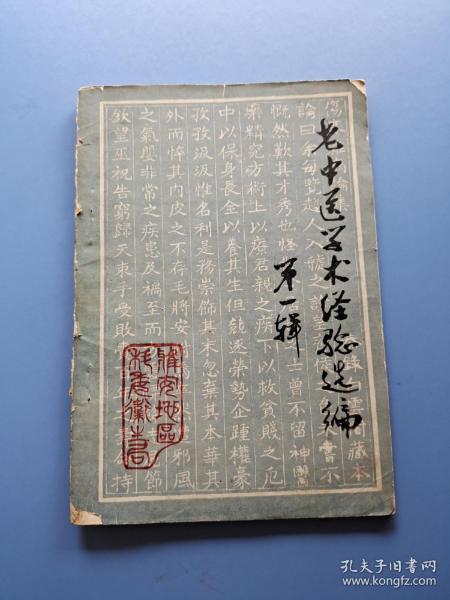 老中医学术经验选编
第一辑
藏本
論曰余每覽越人入虢之診望
嘗不
慨然歎其才秀也怪
士曾不留神醫
藥精究方術上以療君親之疾下以救貧賤之厄
中以保身長全以養其生但競逐榮勢企踵權豪
孜孜汲汲惟名利是務崇飾其末忽棄其本華其
外而悴其內皮之不存毛將安
邪風
之氣嬰非常之疾患及禍至而
節
欽望巫祝告窮歸天束手受敗
持
雅安地區
孔夫子旧书网
www.kongfz.com